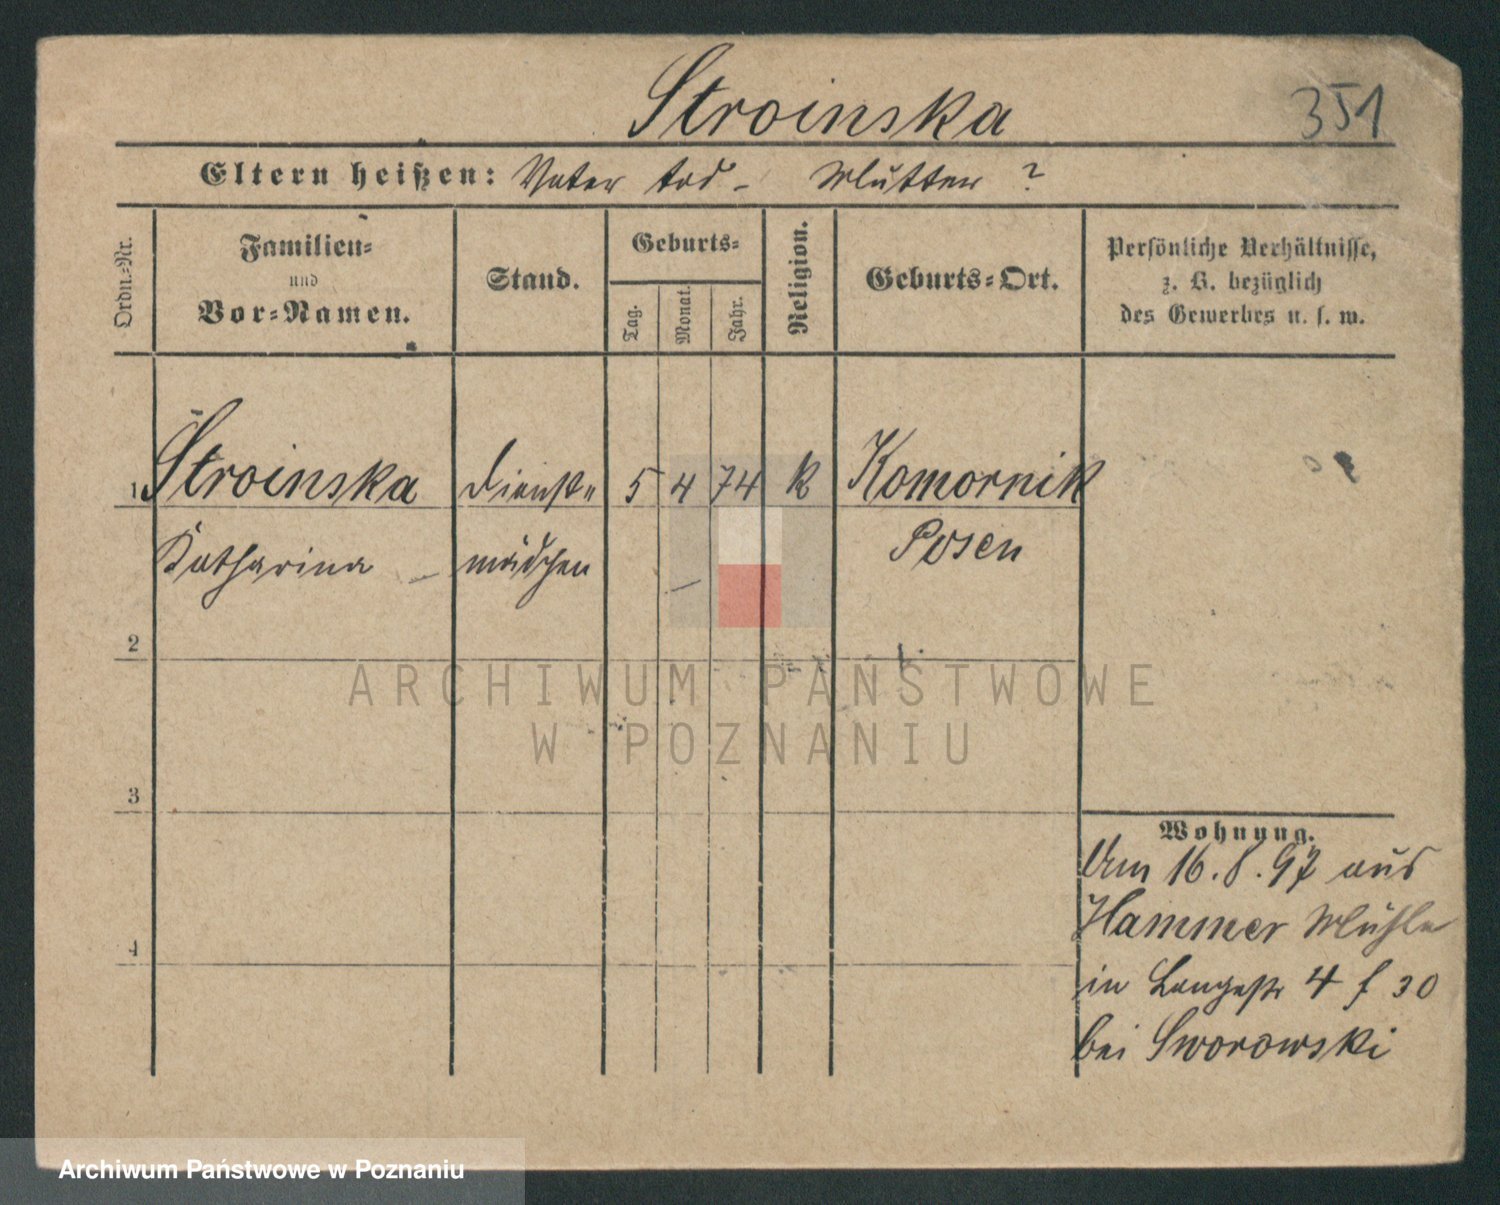 Stroinska
351
Eltern heißen: Vater tod - Mutter ?
Ordn.-Nr.
Familien-
und
Vor-Namen.
Stand.
Geburts-
Tag.
Monat.
Jahr.
Religion.
Geburts-Ort.
Persönliche Verhältnisse,
z. B. bezüglich
des Gewerbes u. s. w.
1 Stroinska Dienst- 5 4 74 k Komornik
Katharina - mädchen Posen
2
ARCHIWUM PAŃSTWOWE
W POZNANIU
3
Wohnung.
Am 16.8.97 aus
Hammer Mühle
4
in Langestr 4 f 30
bei Sworowski
Archiwum Państwowe w Poznaniu